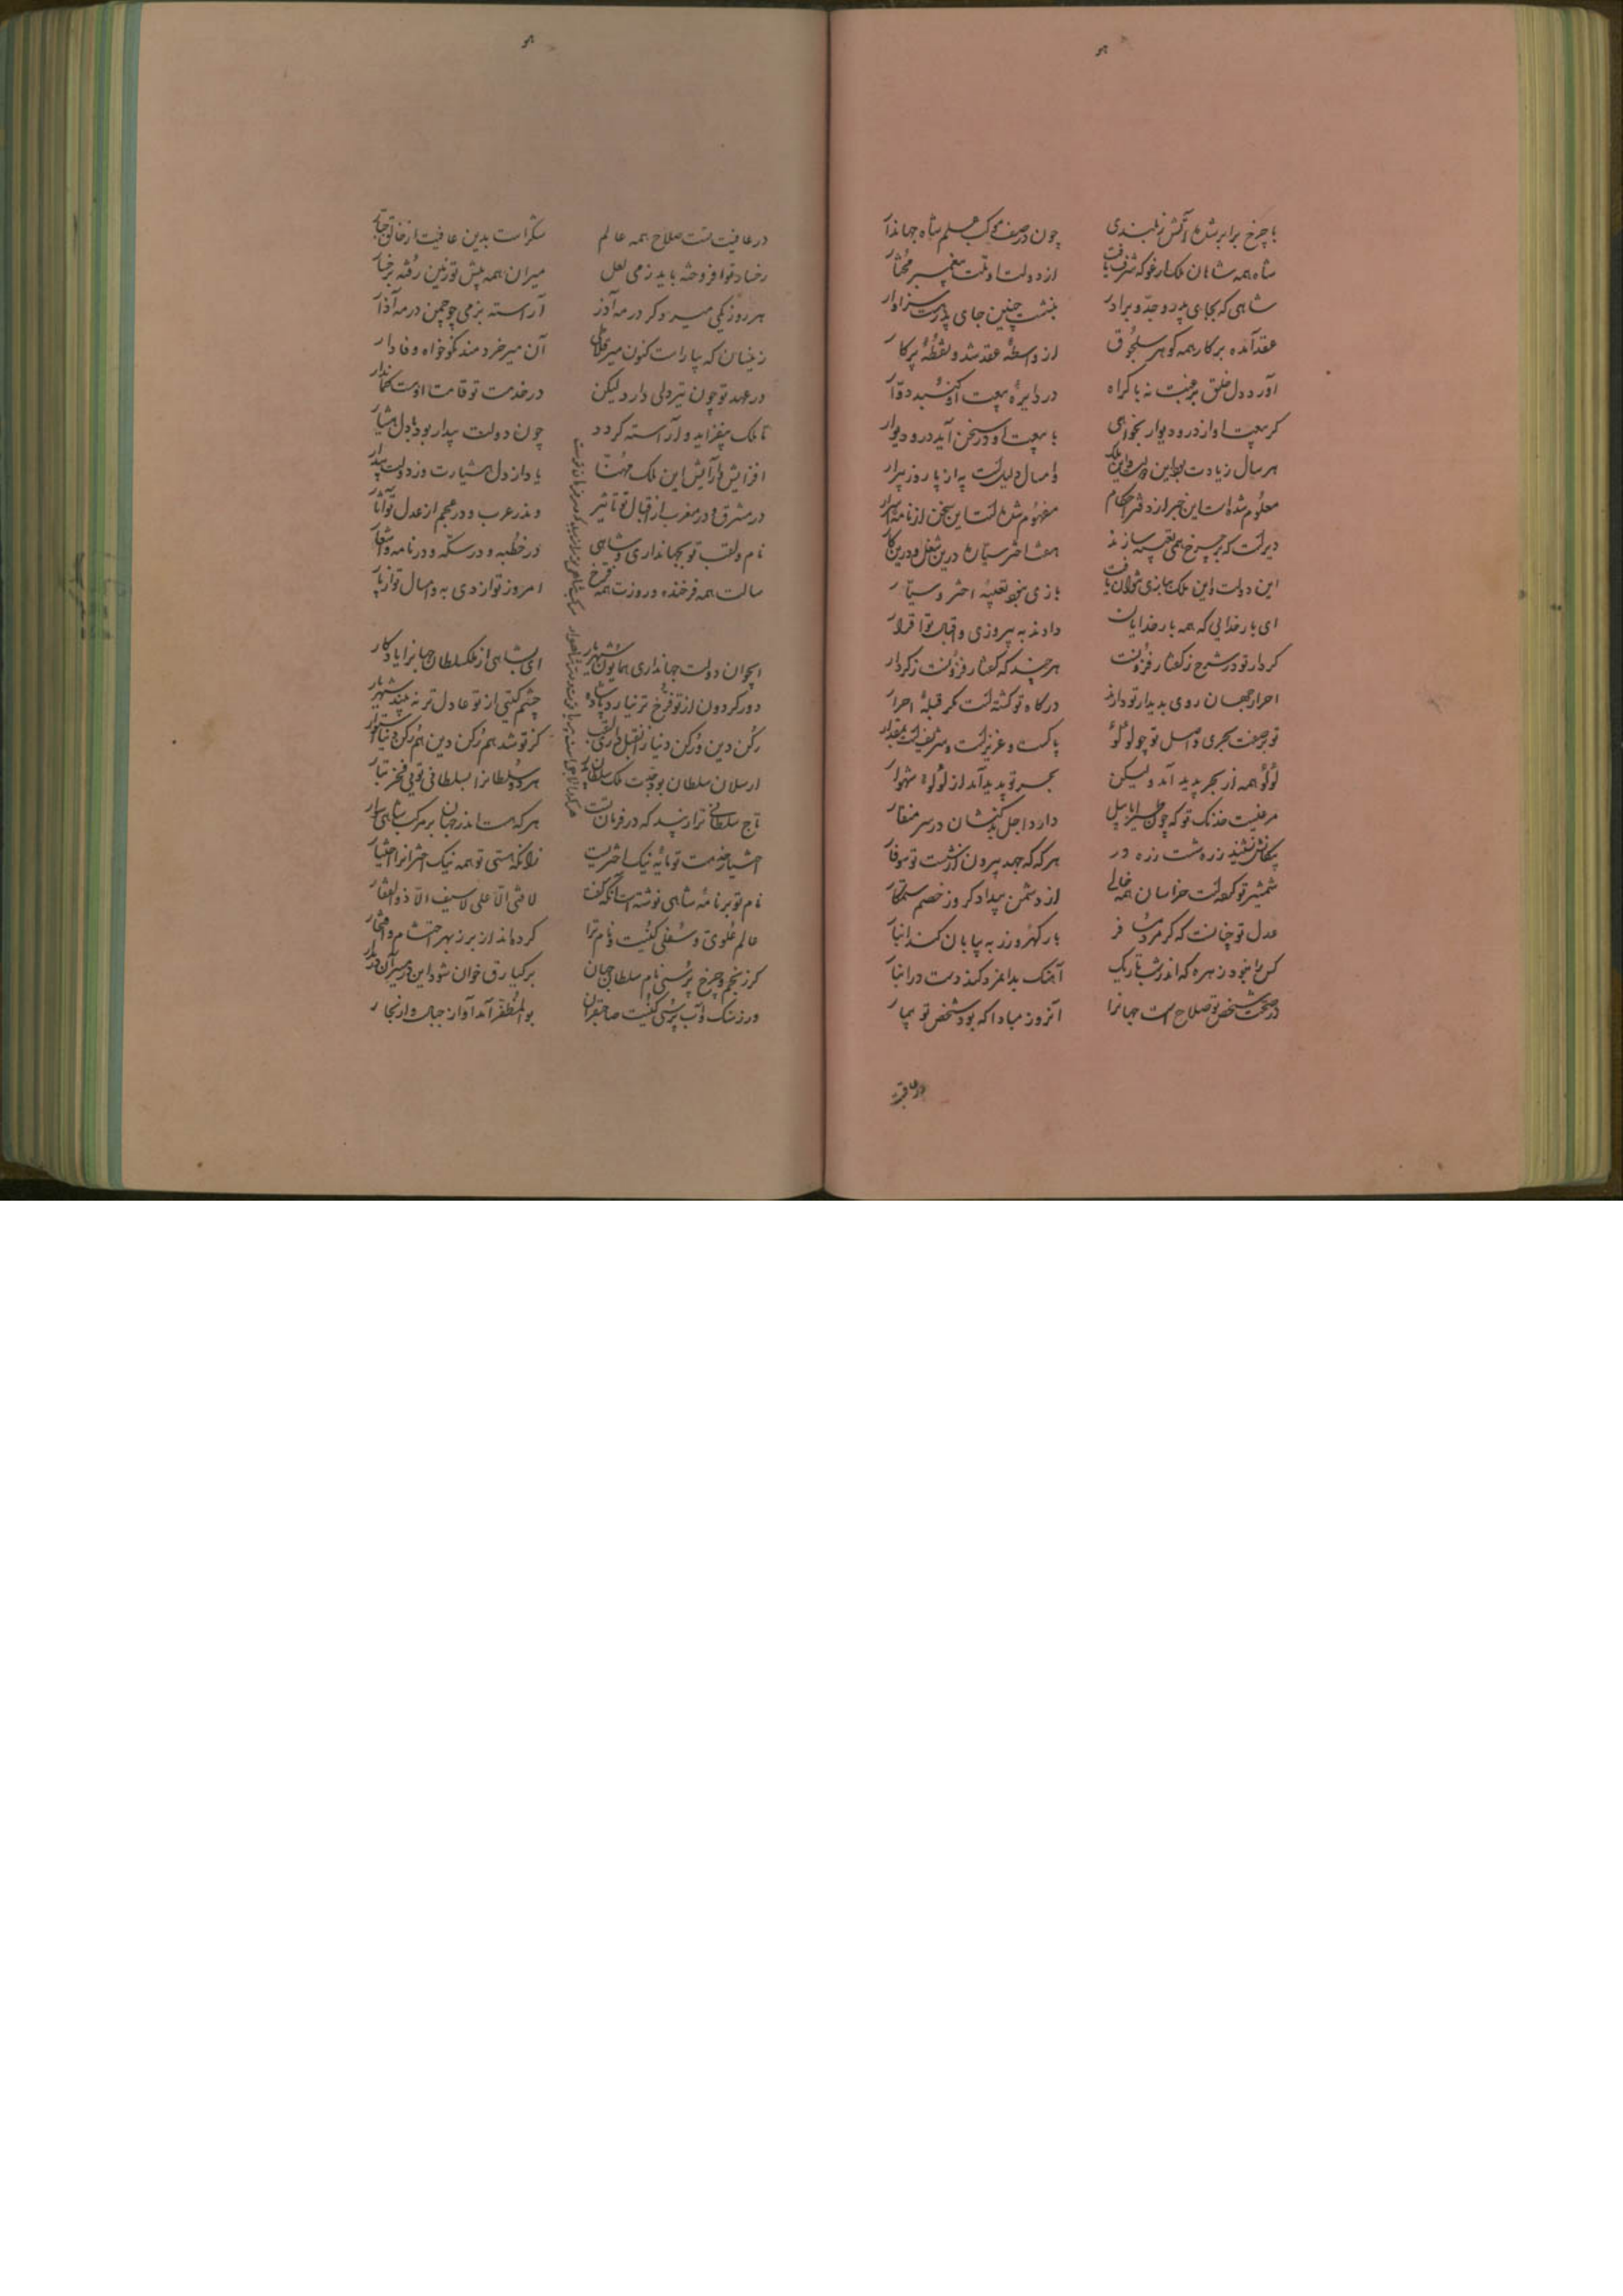 هو
با چرخ برابر شده آتش ز بلندی چون در صف موکب علم شاه جهاندار
شاه همه شاهان ملک ارغو که شرف یافت از دولت او ملت پیغمبر مختار
شاهی که بجای پدر و جد و برادر بنشست چنین جای پدر هست سزاوار
عقد آمده برکار همه گوهر سلجوق او واسطه عقد شد و نقطه پرگار
آورد دل خلق برغبت نه باکراه در دایره بیعت او گنبد دوار
گر بیعت او از در و دیوار بخواهی با بیعت او در سخن آید در و دیوار
هر سال زیادت بود این دولت و این ملک و امسال دلیلست به از پار و ز پیرار
معلوم شده است این خبر از دفتر احکام مفهوم شده است این سخن از نامه اسرار
دیرست که بر چرخ همی تعبیه سازند هفت اختر سیاره درین شغل و درین کار
این دولت و این ملک ببازی نتوان یافت بازی نبود تعبیه اختر سیار
ای بار خدایی که همه بار خدایان دادند به پیروزی و اقبال تو اقرار
کردار تو در شرح ز گفتار فزونست هرچند که گفتار فزونست ز کردار
احرار جهان روی بدیدار تو دارند درگاه تو گشته است مگر قبله احرار
تو بصفت بحری و اصل تو چو لولو پاکست و عزیزست و شریفست بمقدار
لولو همه از بحر پدید آمد و لیکن بحر تو پدید آمد از لولوی شهوار
مرغیست خدنگ تو که چون طیر ابابیل دارد اجل بدکنشان در سر منقار
پیکانش نشیند زره پشت زره در هرگه که جهد بیرون از شست تو سوفار
شمشیر تو کرده است خراسان همه خالی از دشمن بیدادگر و از خصم ستمکار
عدل تو چنانست که گر مرد مسافر بار گهر و زر به بیابان کند انبار
کس را نبود زهره که اندر شب تاریک آهنگ بدان زر کند و دست در انبار
در صحت شخص تو صلاح است جهانرا آنروز مبادا که بود شخص تو بیمار
در عافیت
هو
در عافیت تست صلاح همه عالم شکر است بدین عافیت از خالق جبار
رخسار تو افروخته باید ز می لعل میران همه پیش تو زمین رفته برخسار
هر روز یکی میر دگر در مه آذر آراسته بزمی چو چمن در مه آذار
زینسان که بیاراست کنون میر آن میر خردمند نکوخواه وفادار
در عهد تو چون تیر دلی دارد لیکن در خدمت تو قامت اوست کماندار
تا ملک بیفزاید و آراسته گردد چون دولت بیدار بود با دل هشیار
افزایش و آرایش این ملک مهنا باد از دل هشیارت و ز دولت بیدار
در مشرق و در مغرب از اقبال تو تاثیر و ندر عرب و در عجم از عدل تو آثار
نام و لقب تو بجهانداری و شاهی در خطبه و در سکه و در نامه و اشعار
سالت همه فرخنده و روزت همه فرخ امروز تو از دی به و امسال تو از پار
ای جوان دولت جهانداری همایون شهریار ای بشاهی از ملک سلطان جهانرا یادگار
دور گردون از تو فرخ‌تر نیارد پادشاه چشم گیتی از تو عادل‌تر نه بیند شهریار
رکن دین و رکن دنیا ز اقبل داری لقب کز تو شد هم رکن دین هم رکن دنیا استوار
ارسلان سلطان بو جدت ملک سلطان پدر هر دو سلطانرا بسلطانی تویی فخر تبار
تاج سلطانی ترا زیبد که در فرمان تست هرکه هست اندر جهان بر مرکب شاهی سوار
اختیار خدمت تو مایه نیک اختریست زانکه هستی تو همه نیک اخترانرا اختیار
نام تو بر نامه شاهی نوشته است آنکه گفت لا فتی الا علی لا سیف الا ذوالفقار
عالم علوی و سفلی کنیت و نام ترا کرده‌اند از بر ز بهر احتشام و افتخار
گر ز نجم و چرخ پرسی نام سلطان جهان برکیارق خوان شود این در مسیر آن در مدار
ور ز سنگ و آب پرسی کنیت صاحبقران بوالمظفر آمد آواز جبال و از بحار